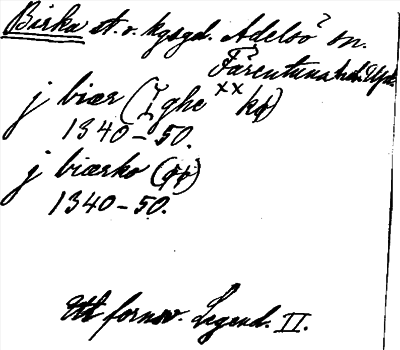 Birka st. o. kgsgd. Adelsö sn.
Färentuna hd. Upl.
j biær (Ighe xx kø)
1340-50.
j biærko (øø)
1340-50.
Ett fornsv. Legend. II.